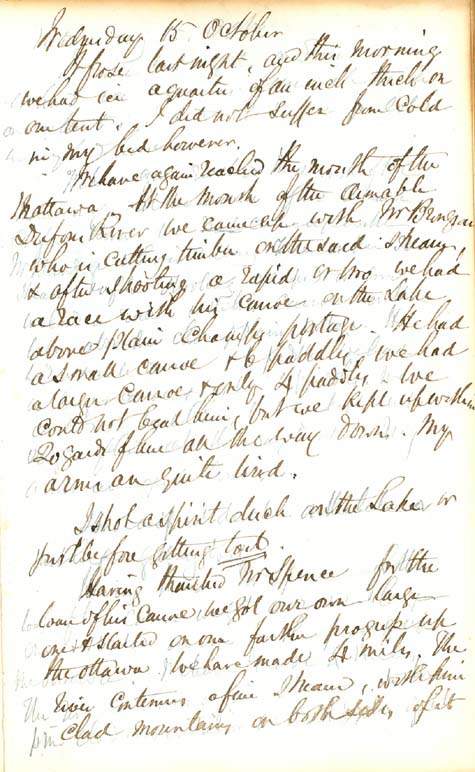 Wednesday 15 October
It froze last night, and this morning
we had ice a quarter of an inch thick on
our tent. I did not suffer from cold
in my bed however.
We have again reached the mouth of the
Mattawa. At the mouth of the Aimable
Dufond River we came up with Mr
who is cutting timber on the said stream,
& after shooting a rapid or two we had
a race with his canoe on the Lake
above Plain Champs portage. He had
a small canoe & 6 paddles, we had
a large canoe & only 4 paddles. We
could not beat him, but we kept up within
20 yards of him all the way down. My
arms are quite tired.
I shot a spirit duck on the Lake or
just before getting to it.
Having thanked Mr Spence for the
loan of his Canoe we got our own large
one & started on our further progress up
the Ottawa. We have made 4 miles. The
River continues a fine stream, with
clad mountains on both sides of it